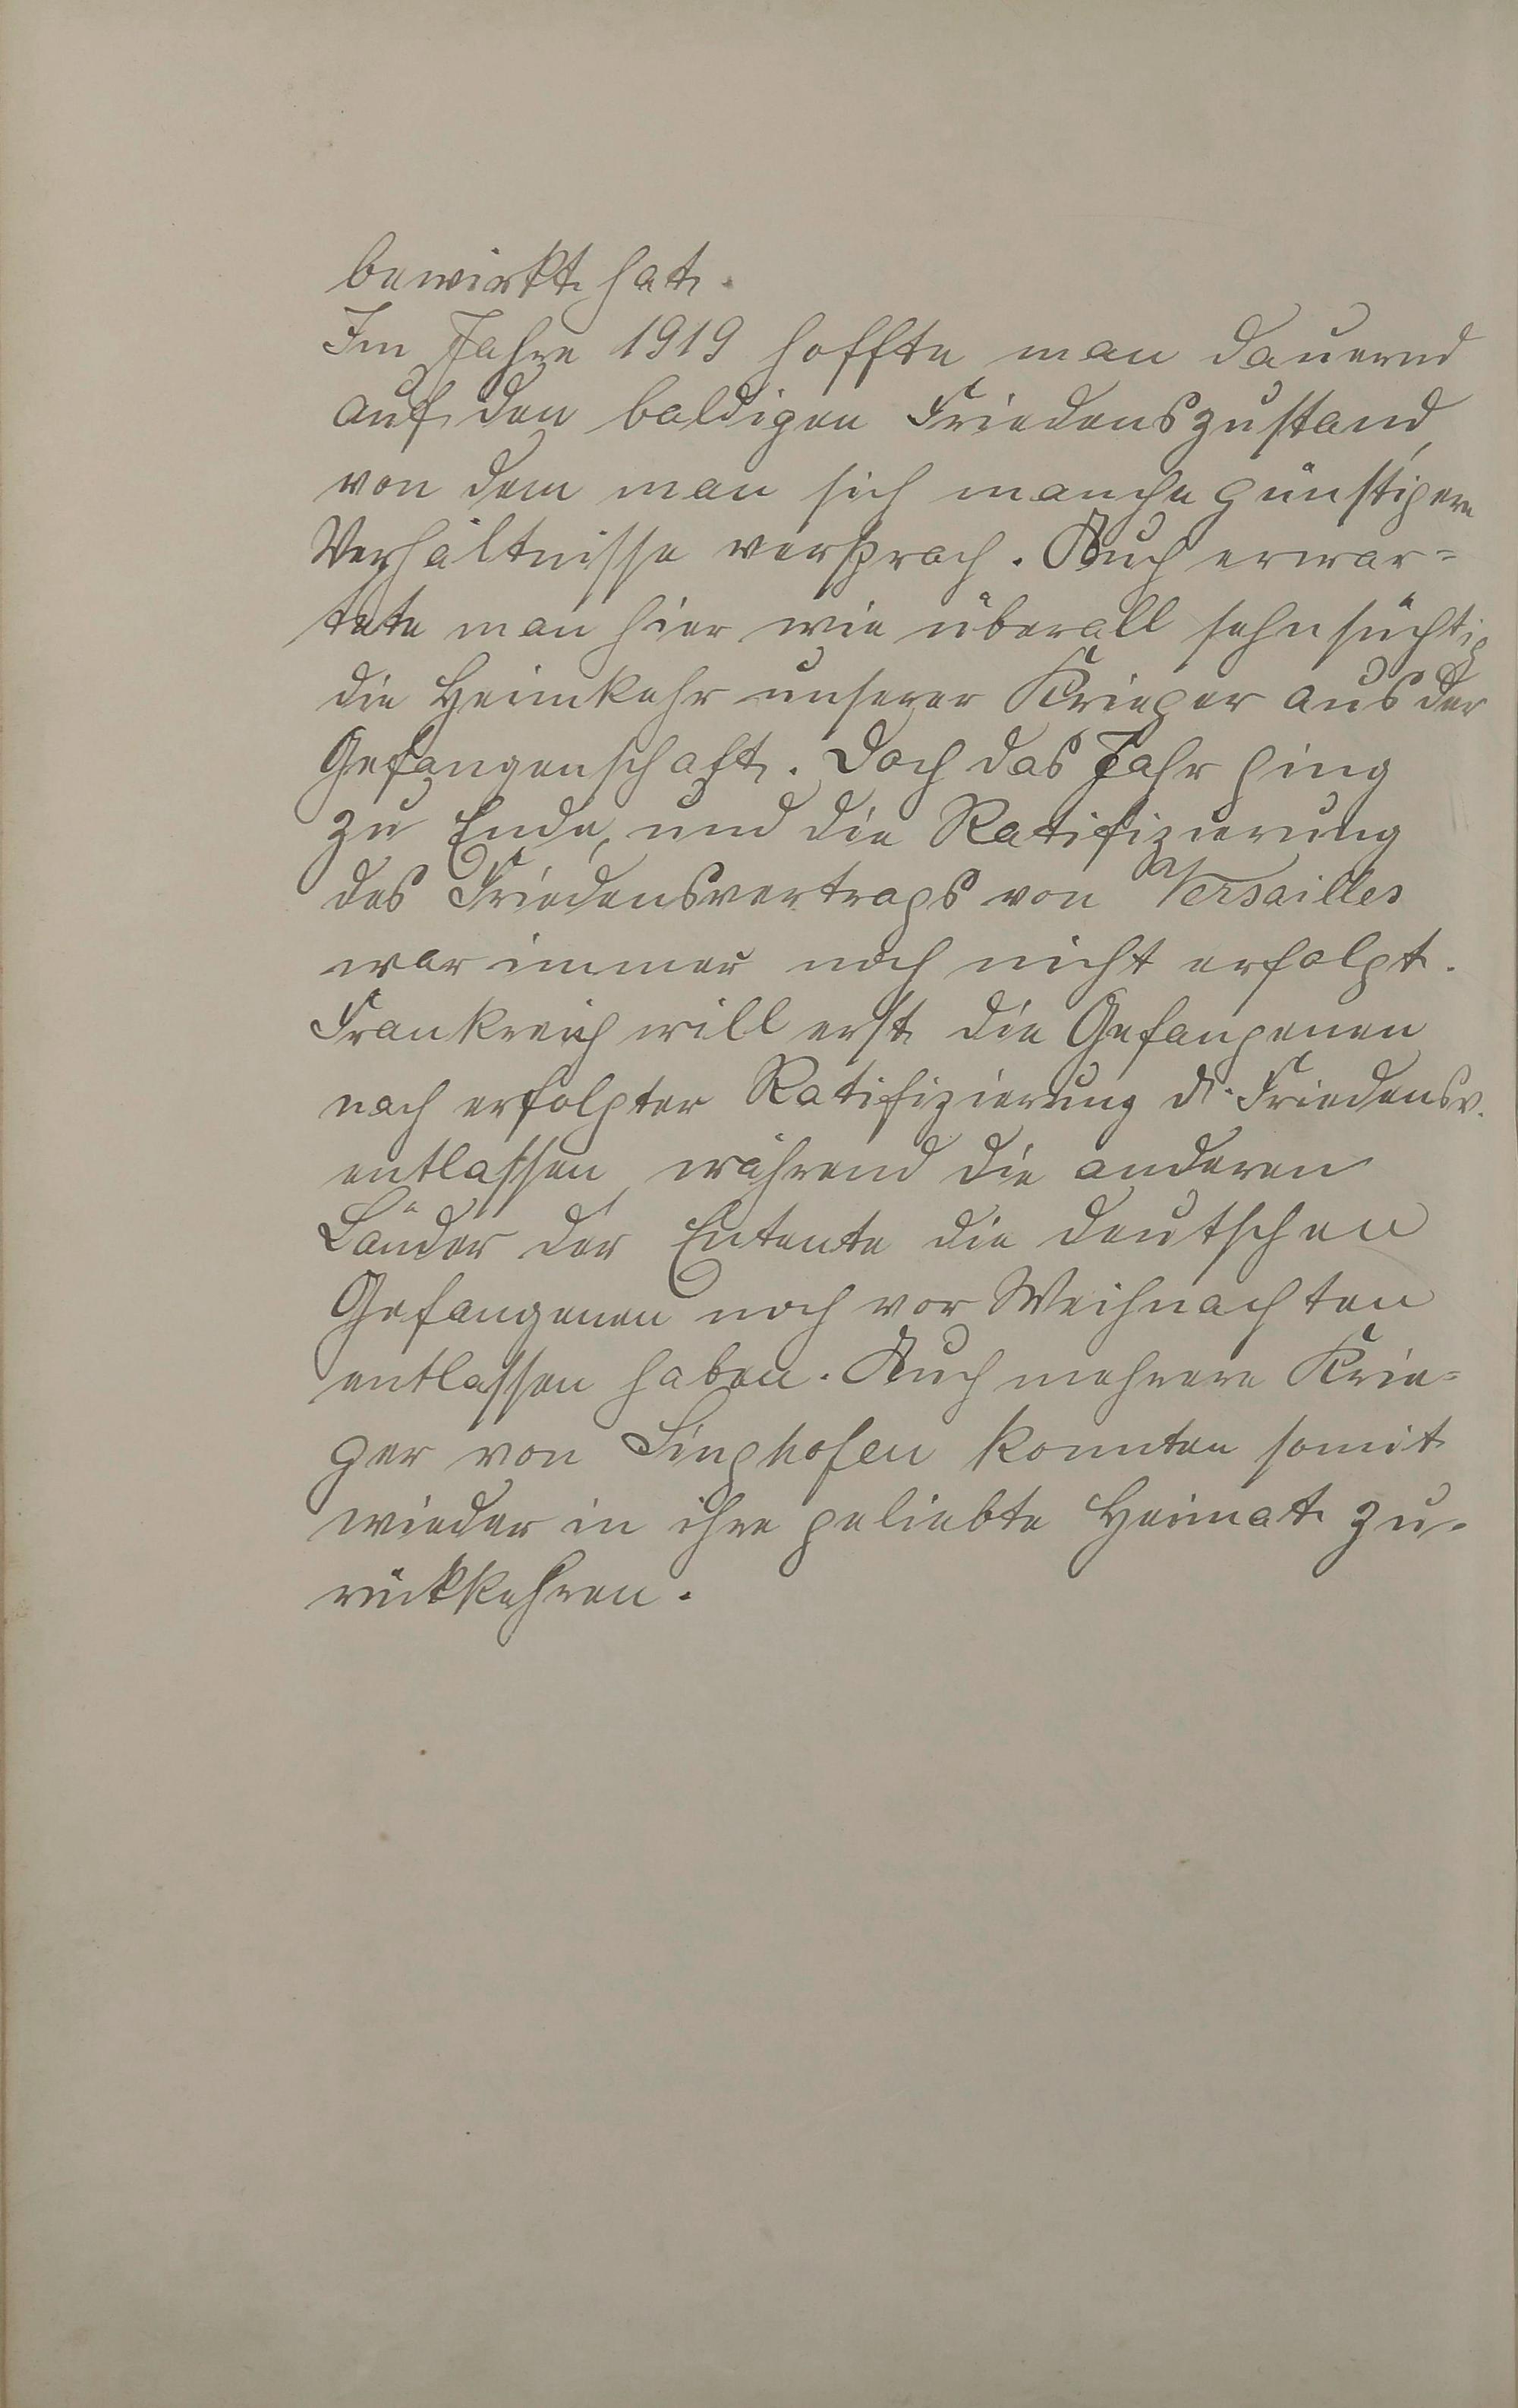 bewirkt hat.
Im Jahre 1919 hoffte man dauernd
auf den baldigen Friedenszustand,
von dem man sich manche günstigere
Verhältnisse versprach. Auch erwar=
tete man hier wie überall sehnsüchtig
die Heimkehr unserer Krieger aus der
Gefangenschaft. Doch das Jahr ging
zu Ende, und die Ratifizierung
des Friedensvertrags von Versailles
war immer noch nicht erfolgt.
Frankreich will erst die Gefangenen
nach erfolgter Ratifizierung d. Friedensv.
entlassen, während die anderen
Länder der Entente die deutschen
Gefangenen noch vor Weihnachten
entlassen haben. Auch mehrere Krie=
ger von Singhofen konnten somit
wieder in ihre geliebte Heimat zu-
rückkehren.